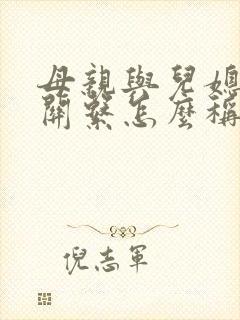 母親與兒媳
關繫怎麼稱
倪志軍